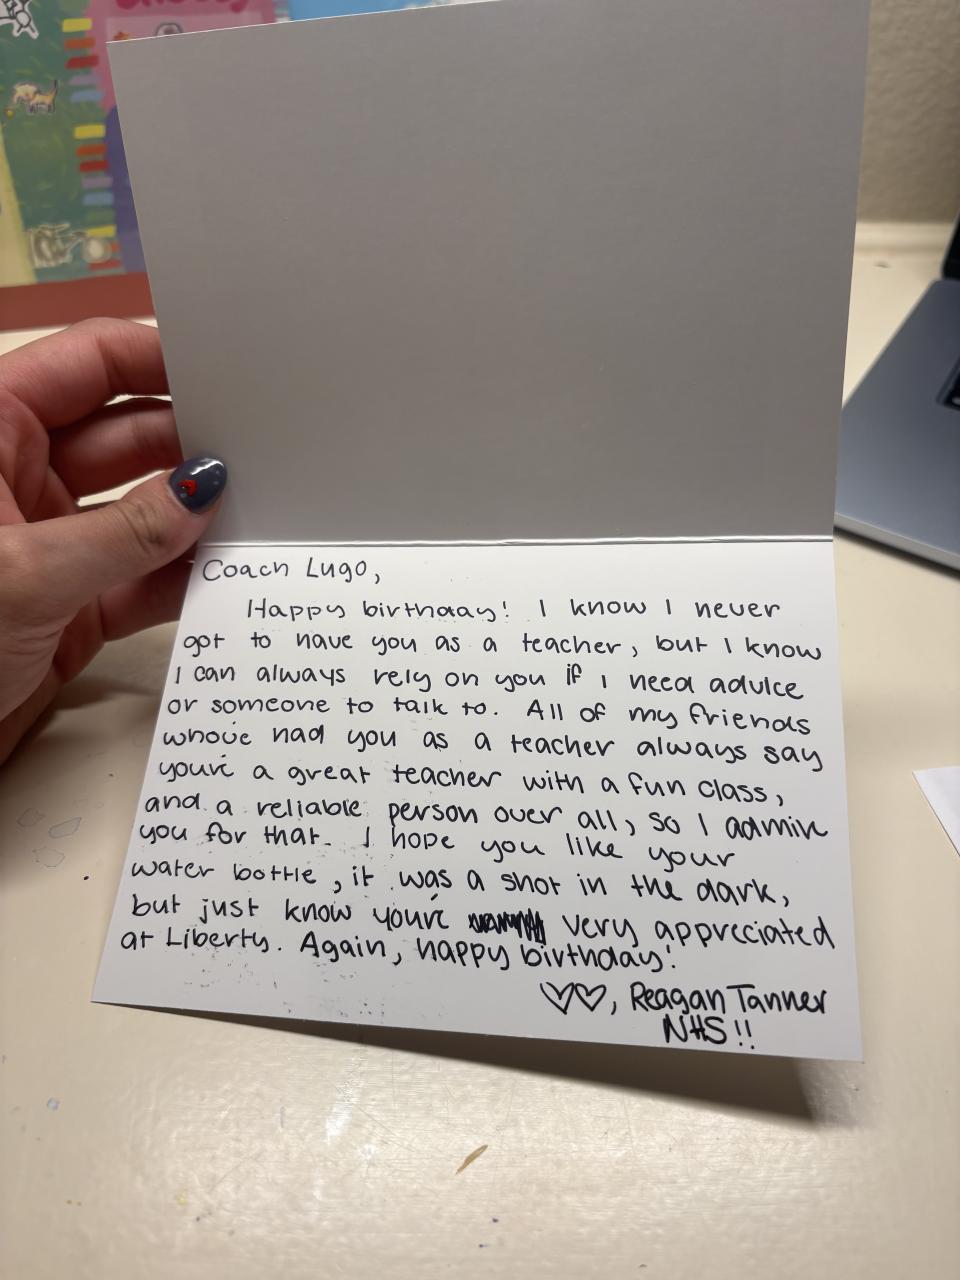 Coach Lugo,
Happy birthday! I know I never
got to have you as a teacher, but I know
I can always rely on you if I need advice
or someone to talk to. All of my friends
who've had you as a teacher always say
you're a great teacher with a fun class,
and a reliable person over all, so I admire
you for that. I hope you like your
water bottle, it was a shot in the dark,
but just know you're very appreciated
at Liberty. Again, happy birthday!
♡♡, Reagan Tanner
NHS!!